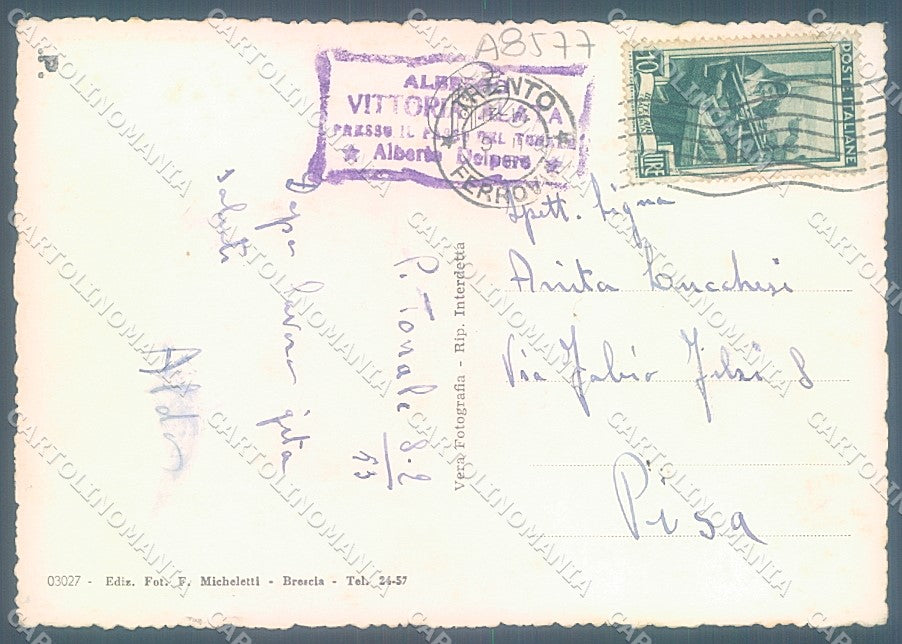 A8577
ALBERGO
VITTORIO VENETO
PRESSO IL PASSO DEL TONALE
★ Alberto Delpero ★
TRENTO
FERROVIA
10
LIRE
POSTE ITALIANE
P. Tonale 8.2
53
Dopo lavoro gita
saluti
Spett. Signa
Anita Lucchesi
Via Fabio Filzi 8
Pisa
Vera Fotografia - Rip. Interdetta
03027 - Ediz. Fot. F. Micheletti - Brescia - Tel. 24-57
CARTOLINOMANIA